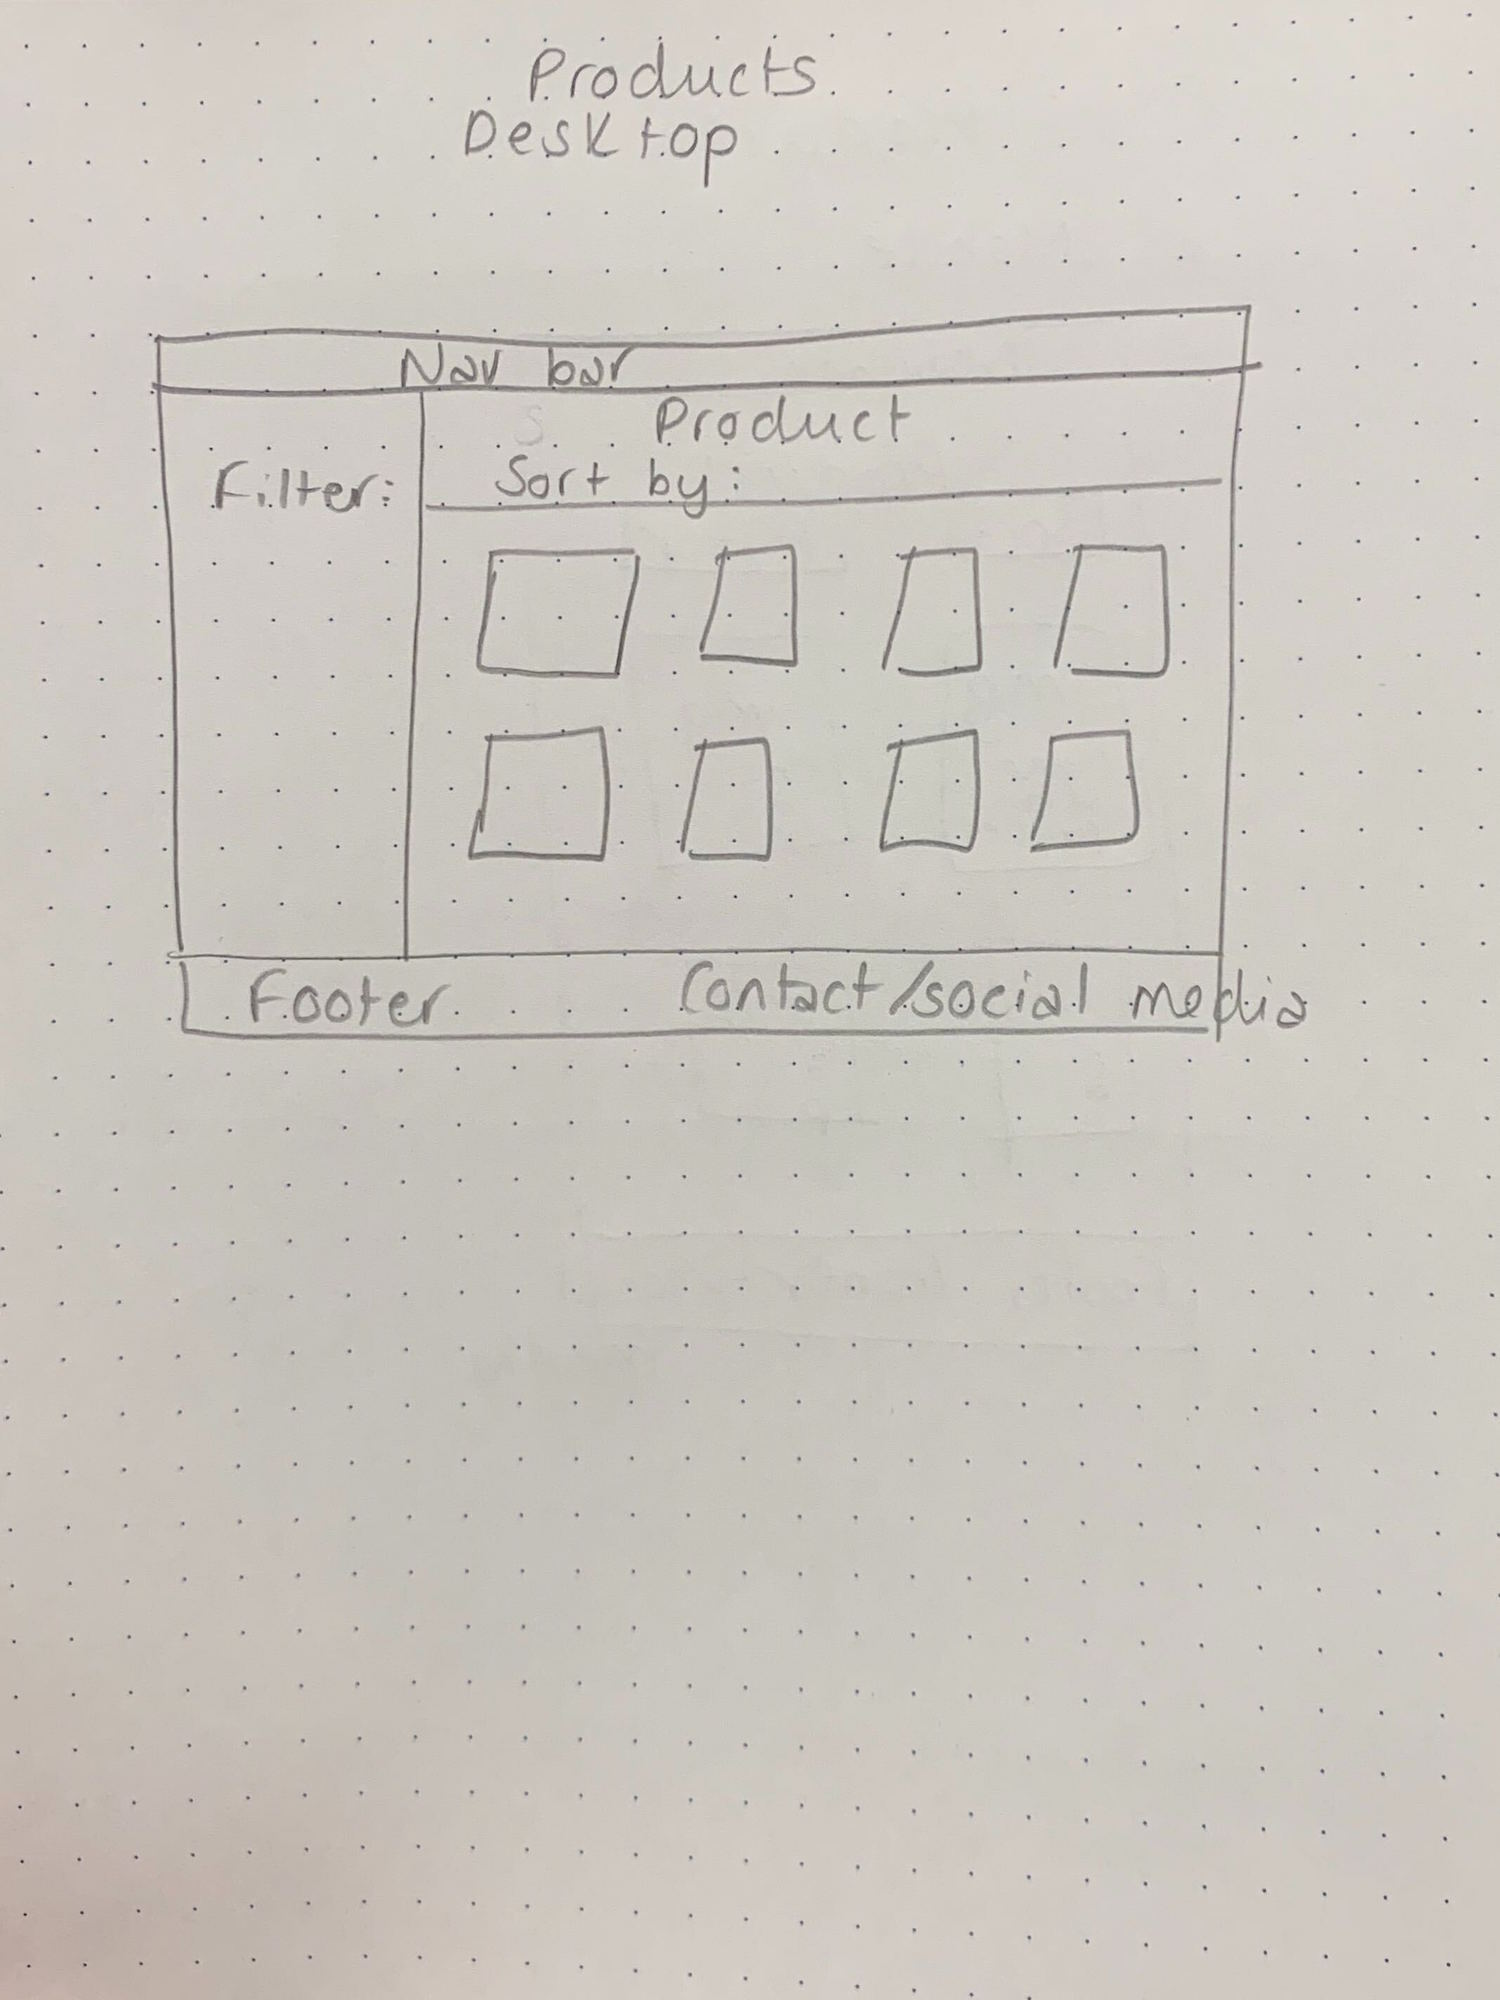 Products
Desktop
Nav bar
Product
Filter:
Sort by:
Footer
Contact/social media